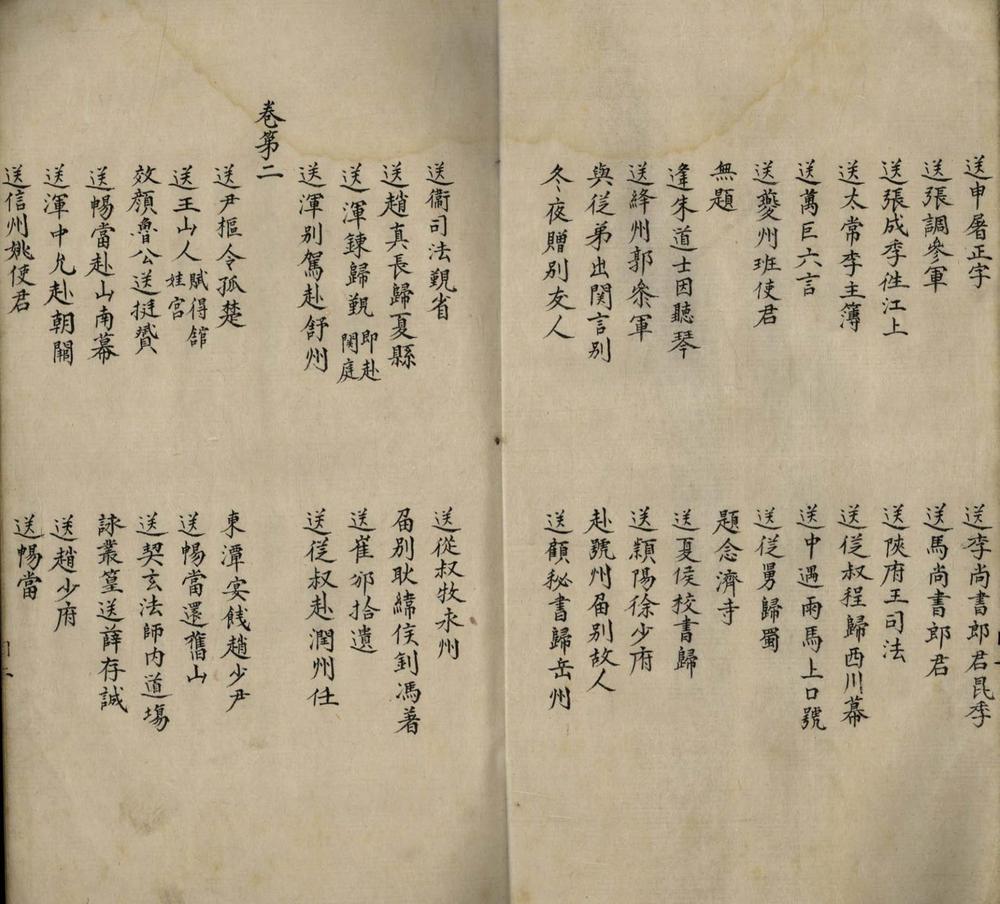 送申屠正字
送李尚書郎君昆季
送張調參軍
送馬尚書郎君
送張成季往江上
送陜府王司法
送太常李主簿
送從叔程歸西川幕
送萬巨六言
送中遇雨馬上口號
送夔州班使君
送從舅歸蜀
無題
題念濟寺
逢朱道士因聽琴
送夏侯校書歸
送絳州郭叅軍
送潁陽徐少府
與從弟出関言别
赴虢州畱别故人
冬夜贈别友人
送顧秘書歸岳州
送衞司法覲省
送從叔牧永州
送趙真長歸夏縣
畱别耿緯侯釗馮著
送渾鍊歸覲 即赴
関庭
送崔邠拾遺
送渾别駕赴舒州
送從叔赴潤州任
卷第二
送尹樞令孤楚
東潭宴餞趙少尹
送王山人 賦得舘
娃宮
送暢當還舊山
效顔魯公送挺贇
送契玄法師内道場
送暢當赴山南幕
詠叢篁送薛存誠
送渾中允赴朝闕
送趙少府
送信州姚使君
送暢當